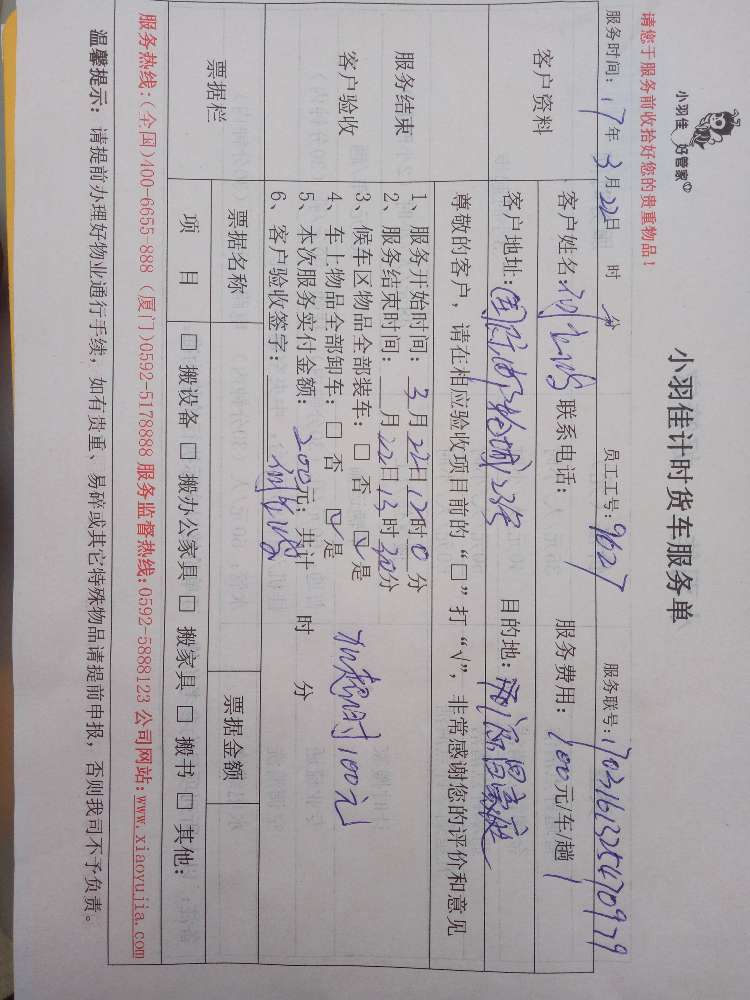 小羽佳 好管家
小羽佳计时货车服务单
请您于服务前收拾好您的贵重物品！
服务时间：17年3月22日 时 分 员工工号：9627 服务联号：170316132540979
客户资料
客户姓名： 联系电话： 服务费用：100元/车/趟
客户地址： 目的地：
尊敬的客户，请在相应验收项目前的“□”打“√”，非常感谢您的评价和意见
服务结束
客户验收
1、服务开始时间：3月22日12时0分
2、服务结束时间： 月22日13时30分
3、候车区物品全部装车：□ 否 ☑ 是
4、车上物品全部卸车：□ 否 ☑ 是
5、本次服务实付金额：200元；共计 时 分
6、客户验收签字：
加超时100元
票据栏
票据名称 票据金额
项 目 □ 搬设备 □ 搬办公家具 □ 搬家具 □ 搬书 □ 其他：
服务热线：(全国)400-6655-888 (厦门)0592-5178888 服务监督热线：0592-5888123 公司网站：www.xiaoyujia.com
温馨提示：请提前办理好物业通行手续，如有贵重、易碎或其它特殊物品请提前申报，否则我司不予负责。